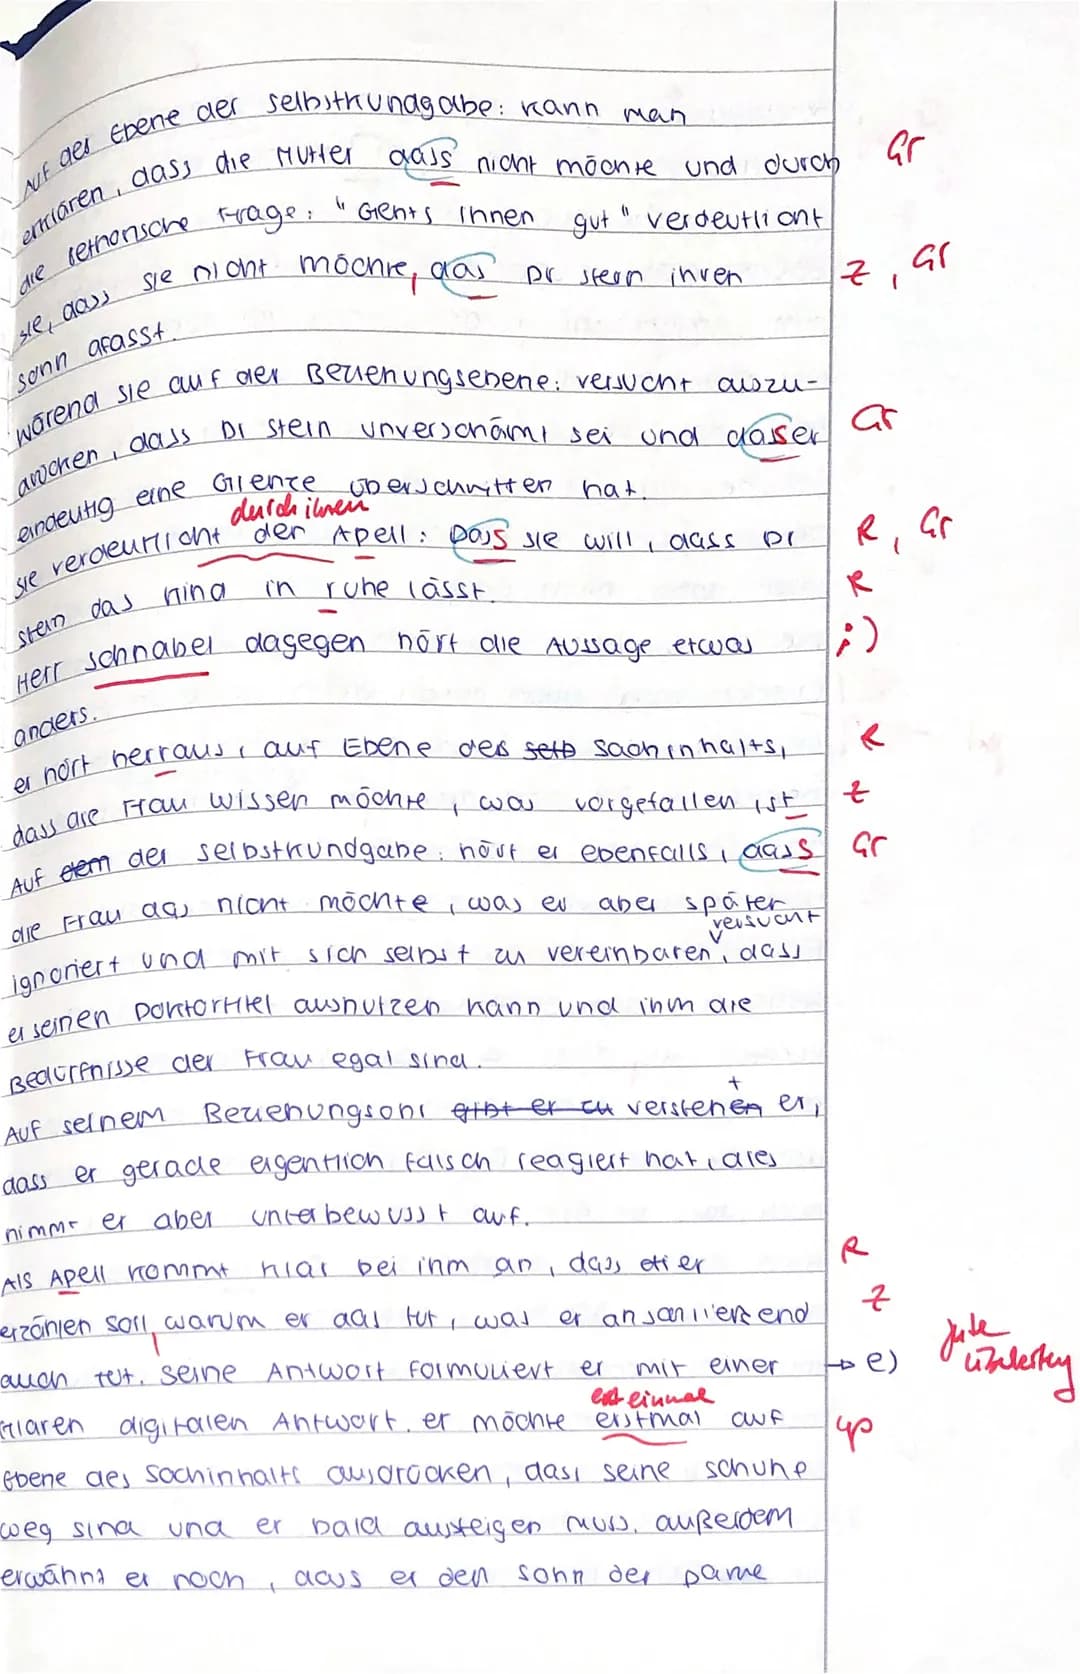 Auf der Ebene der Selbstkundgabe: kann man
erklären, dass die Mutter dass nicht möchte und durch Gr
die rethorische Frage: "Gehts Ihnen gut" verdeutlicht
sie, dass sie nicht möchte, das Dr Stern ihren Z, Gr
sohn afasst.
wärend sie auf der Beziehungsebene: versucht auszu-
drücken, dass Dr Stern unverschämt sei und dasser Gr
eindeutig eine Grenze überschritten hat.
durch ihren
sie verdeutlicht der Apell: Dass sie will, dass Dr R, Gr
Stern das Kind in ruhe lässt. R
Herr Schnabel dagegen hört die Aussage etwas ;)
anders.
er hört herraus, auf Ebene des Sachinhalts, R
dass die Frau wissen möchte, was vorgefallen ist Z
Auf der Selbstkundgabe: hört er ebenfalls, dass Gr
die Frau das nicht möchte, was er aber später
versucht
ignoriert und mit sich selbst zu vereinbaren, dass
er seinen Doktortitel ausnutzen kann und ihm die
Bedürfnisse der Frau egal sind.
Auf seinem Beziehungsohr gibt er zu verstehen er,
dass er gerade eigentlich falsch reagiert hat, dies
nimmt er aber unterbewusst auf.
Als Apell kommt klar bei ihm an, dass er R
erzählen soll, warum er das tut, was er anschließend Z
auch tut. Seine Antwort formuliert er mit einer → e) gute
erst einmal
klaren digitalen Antwort. er möchte erstmal auf
Ebene des Sachinhalts ausdrücken, dass seine schuhe
weg sind und er bald austeigen muss. außerdem
erwähnt er noch, dass er den Sohn der Dame